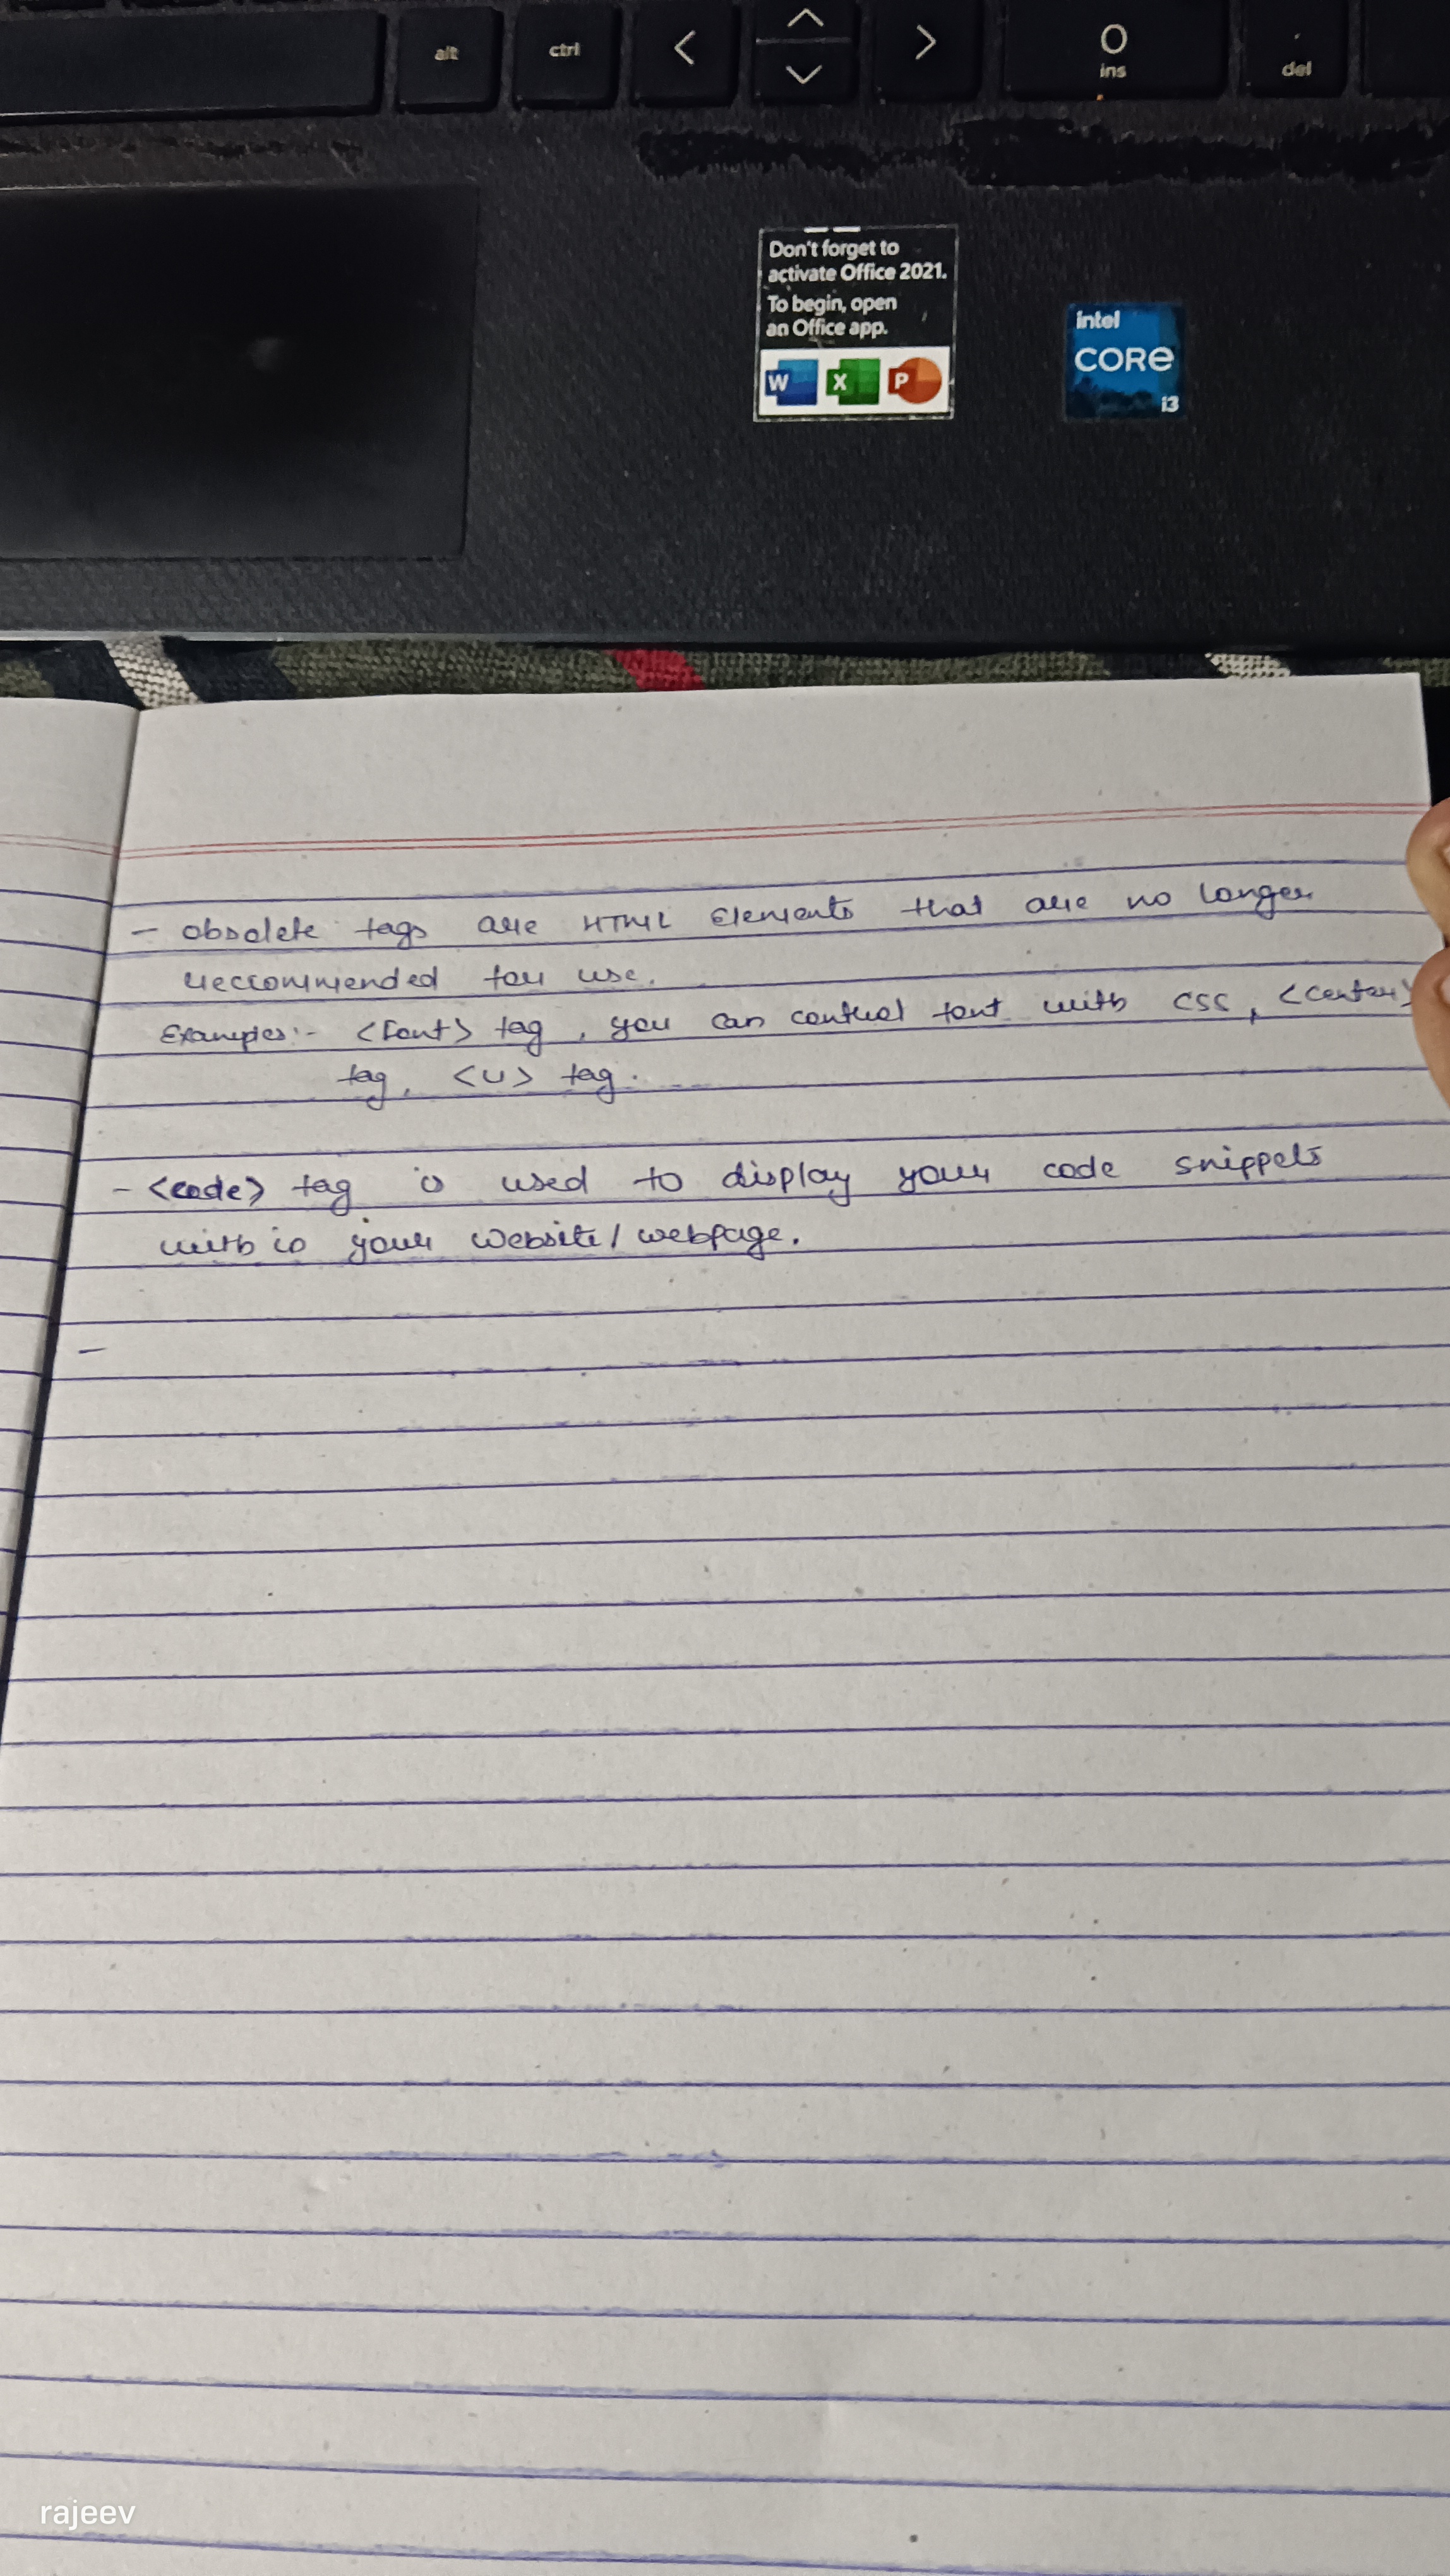 alt ctrl < ^ > 0 .
ins del
Don't forget to
activate Office 2021.
To begin, open
an Office app.
W X P
intel
CORE
i3
- obsolete tags are HTML Elements that are no longer
reccommended for use.
Examples:- <font> tag, you can control font with CSS, <center>
tag, <U> tag.
- <code> tag is used to display your code snippets
with in your website/webpage.
-
rajeev